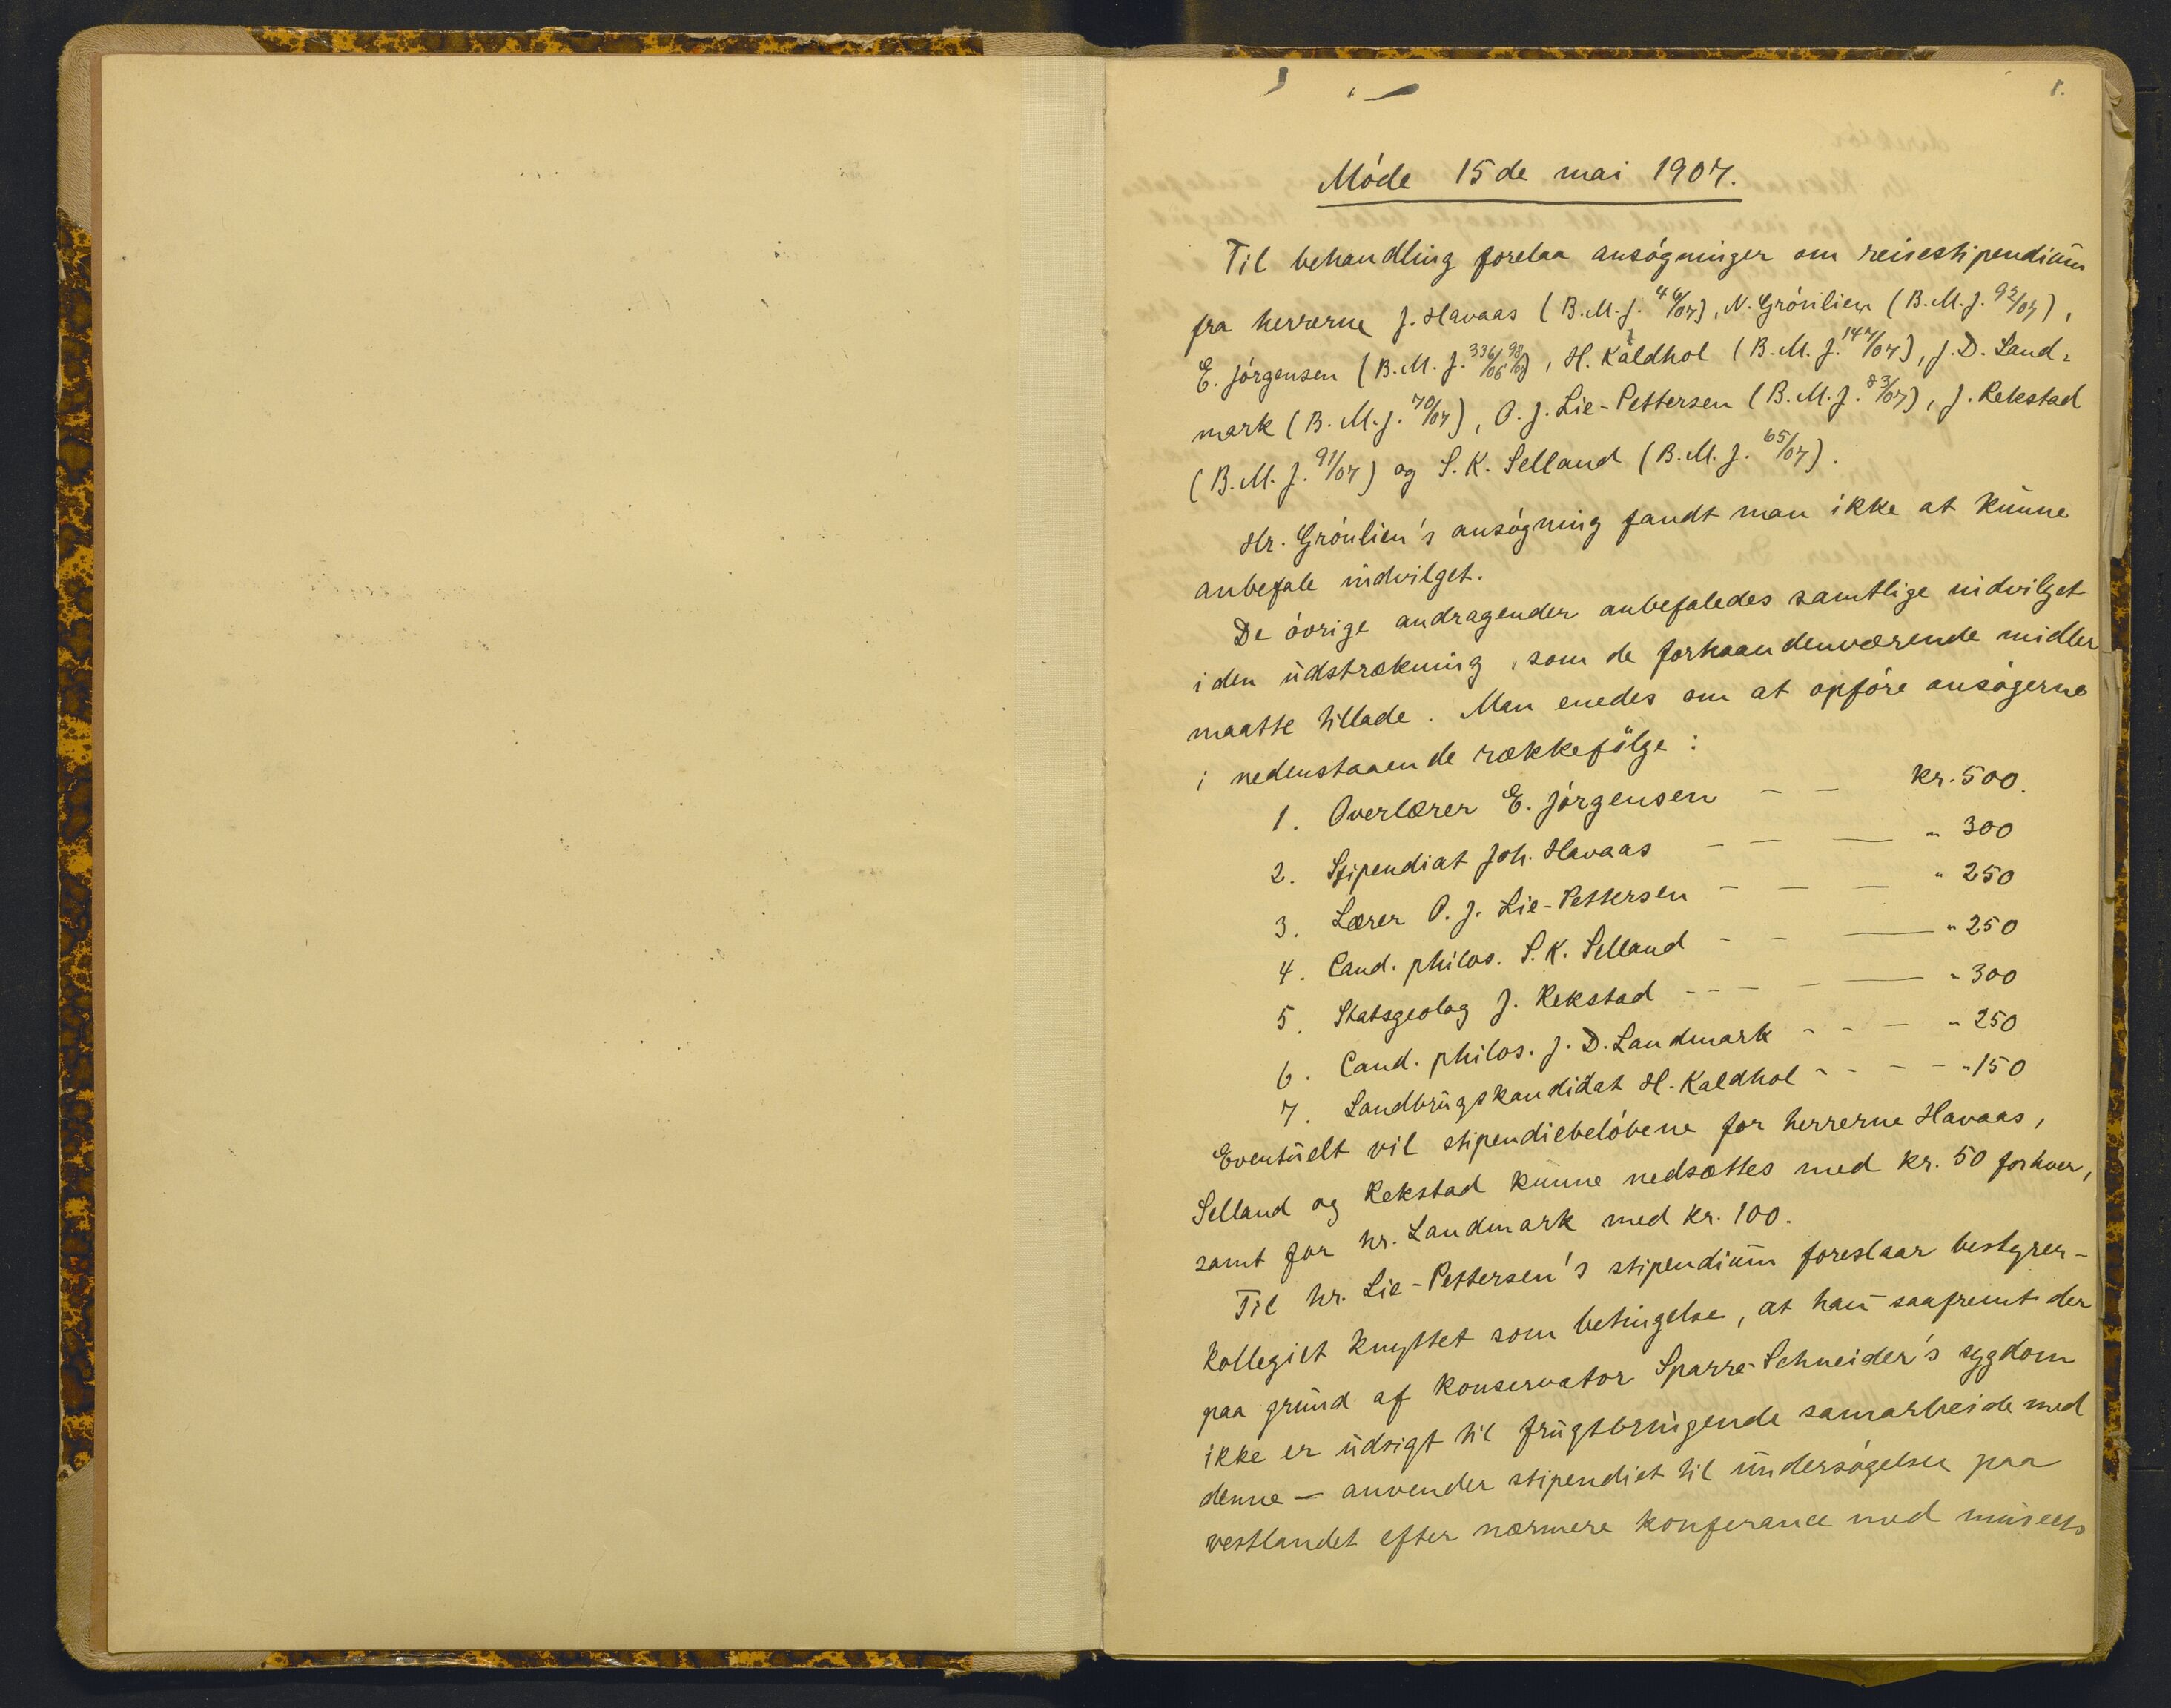 1.
Móde 15de mai 1907.
Til behandling forelaa ansógninger om reisestipendium
fra herrerne J. Havaas (B.M.J. 46/07), N. Grónlien (B.M.J. 92/07),
E. Jórgensen (B.M.J. 336/06 98/07), H. Kaldhol (B.M.J. 147/07), J. D. Land-
mark (B.M.J. 70/07), O. J. Lie-Pettersen (B.M.J. 83/07), J. Rekstad
(B.M.J. 91/07) og S. K. Selland (B.M.J. 65/07).
Hr. Grónlien's ansógning fandt man ikke at kunne
anbefale indvilget.
De óvrige andragender anbefaledes samtlige indvilget
i den udstrækning, som de forhaandenværende midler
maatte tillade. Man enedes om at opfóre ansógerne
i nedenstaaende rækkefólge:
1. Overlærer E. Jórgensen - - kr. 500.
2. Stipendiat Joh. Havaas - - — " 300
3. Lærer O. J. Lie-Pettersen - - - " 250
4. Cand. philos. S. K. Selland - - — " 250
5. Statsgeolog J. Rekstad - - - - — " 300
6. Cand. philos. J. D. Landmark - - - " 250
7. Landbrugskandidat H. Kaldhol - - - - " 150
Eventuelt vil stipendiebelóbene for herrerne Havaas,
Selland og Rekstad kunne nedsættes med kr. 50 for hver,
samt for hr. Landmark med kr. 100.
Til hr. Lie-Pettersen's stipendium foreslaar bestyrer-
kollegiet knyttet som betingelse, at han saafremt der
paa grund af konservator Sparre-Schneider's sygdom
ikke er udsigt til frugtbringende samarbeide med
denne — anvender stipendiet til undersógelser paa
vestlandet efter nærmere konferance med museets